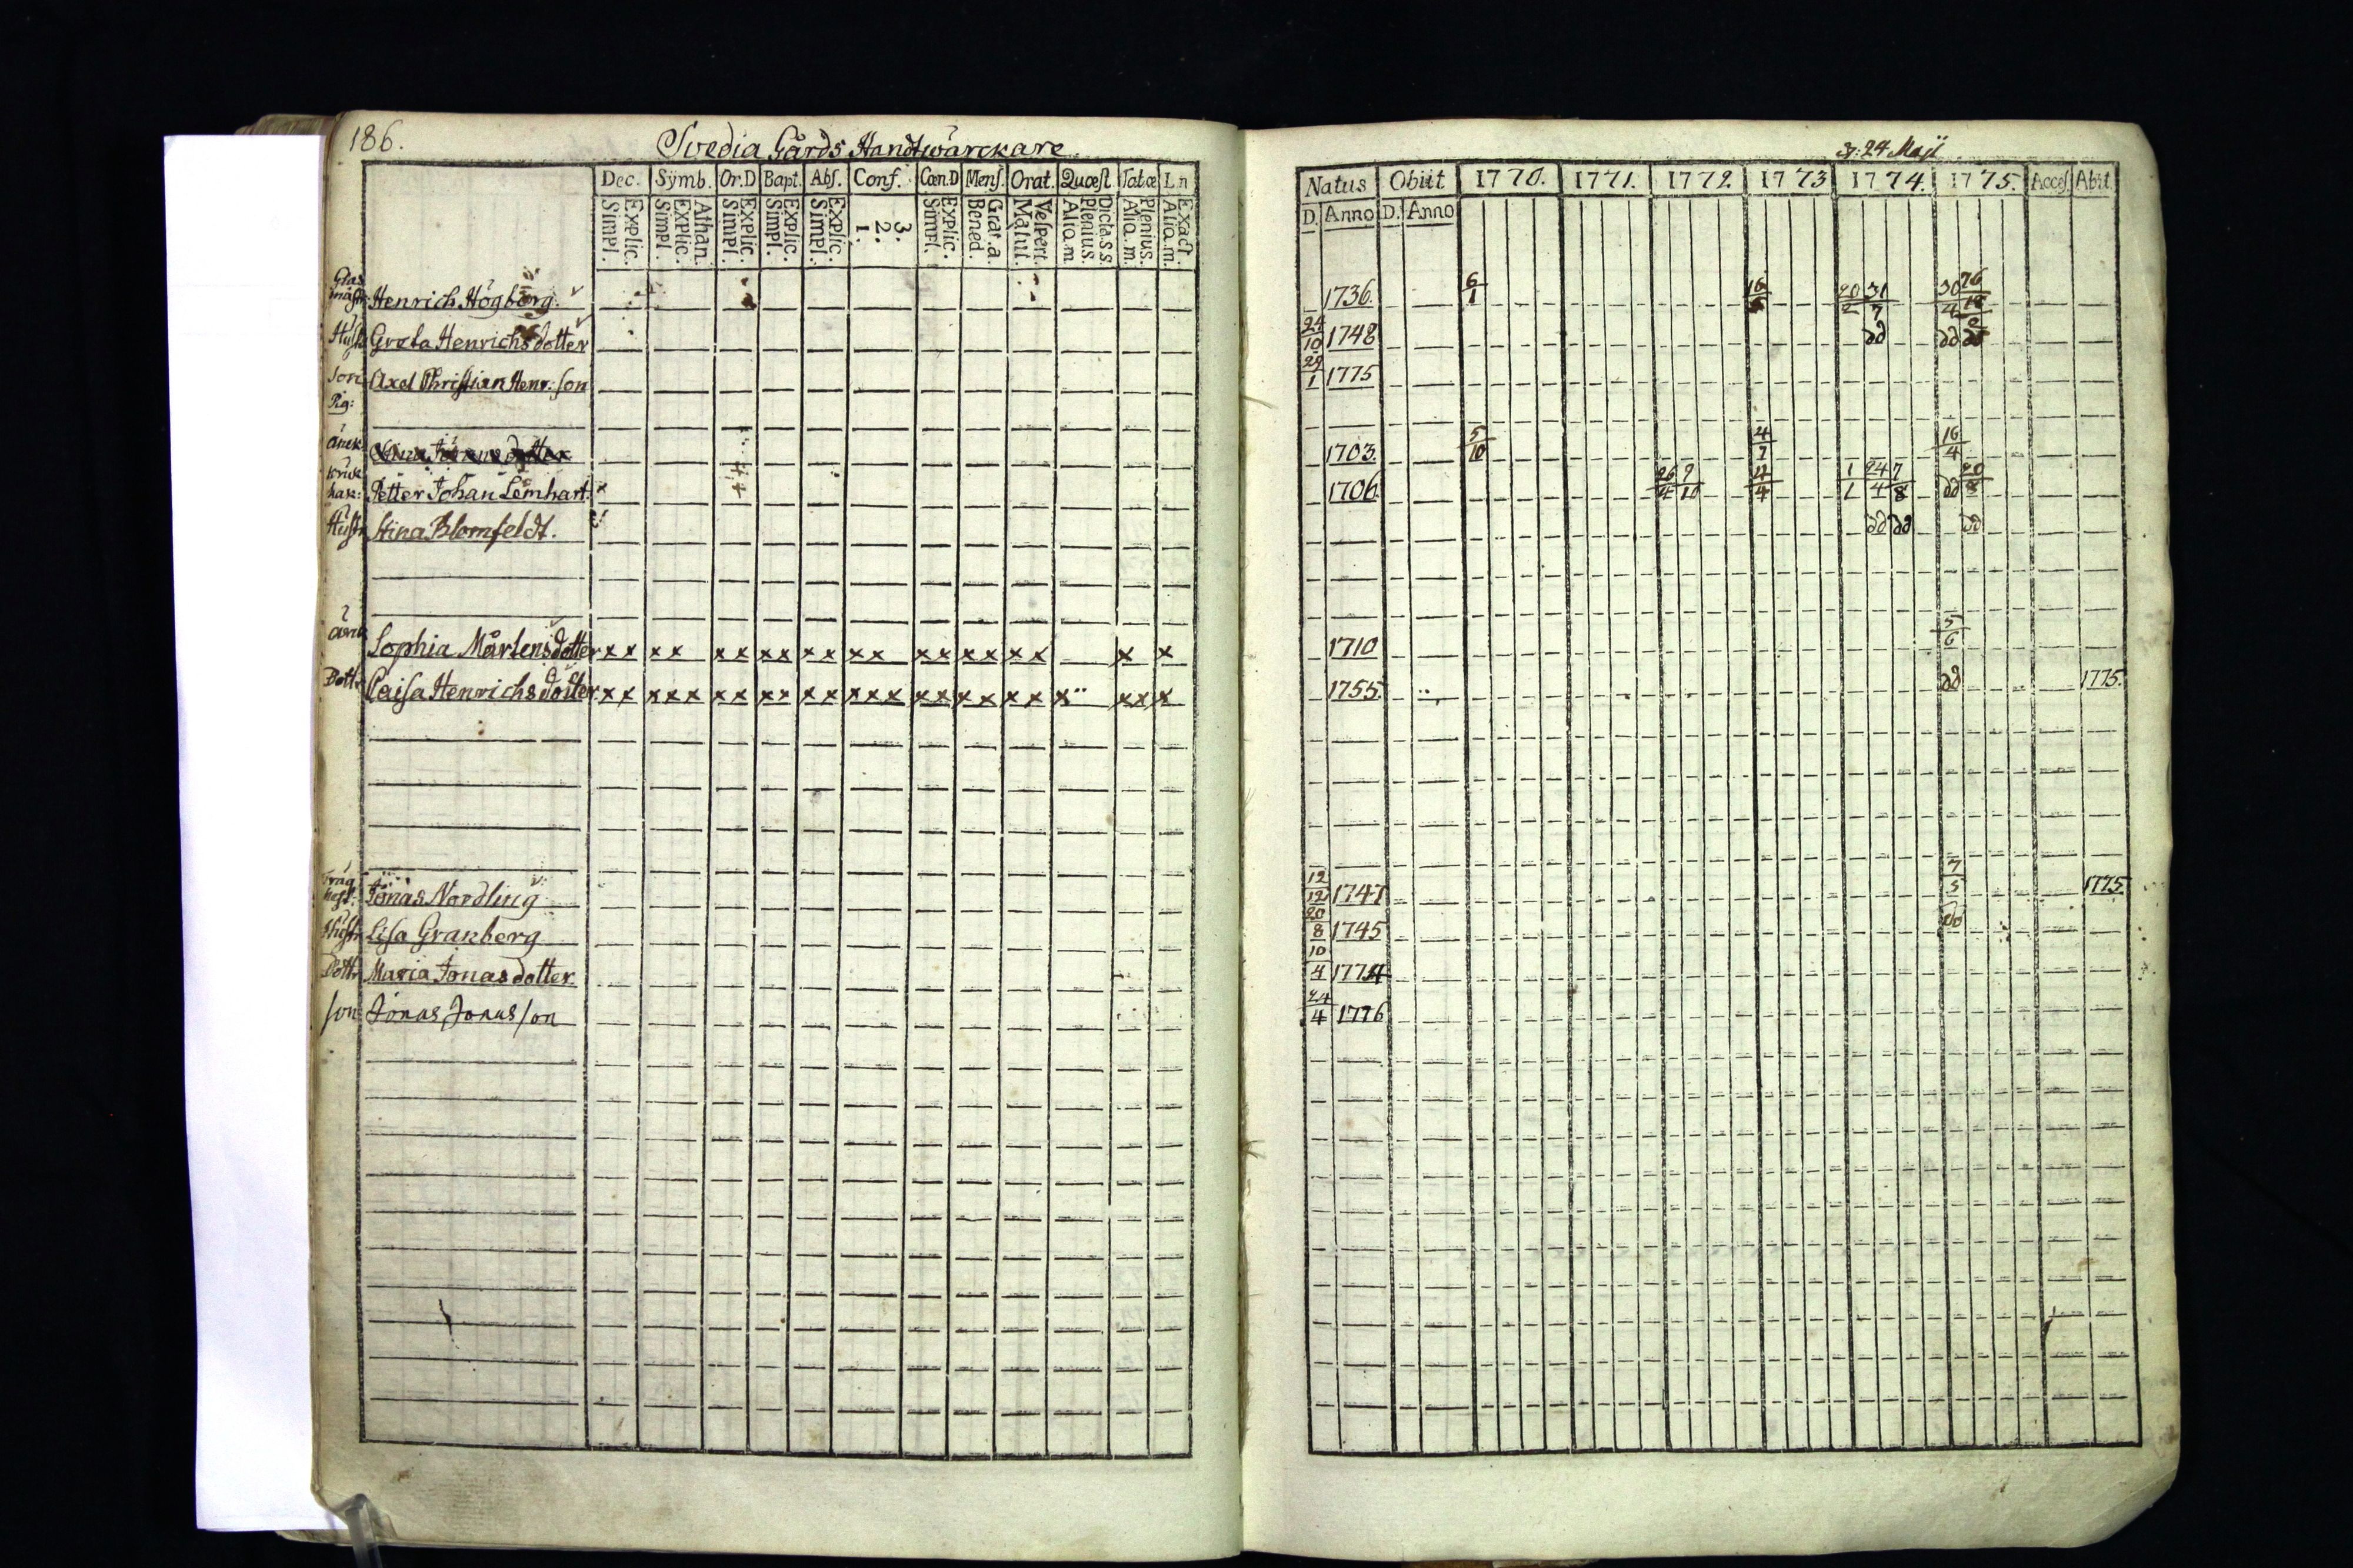 186.
Svedia Gårds Handtwärckare
Dec. Symb. Or.D Bapt. Abs. Conf. Cœn.D Mens. Orat. Quæst. Tab.æ L n
Explic. Simpl. Athan. Explic. Simpl. Explic. Simpl. Explic. Simpl. Explic. Simpl. 3. 2. 1. Explic. Simpl. Grat. a. Bened. Vespert. Matut. Dicta s s. Plenius Aliq. m. Plenius. Aliq. m. Exact. Aliq. m.
Glas mäst: Henrich Högberg.
Hust: Greta Henrichsdotter
Son Axel Christian Henr: son
Pig:
änck.
Petter Johan Lemhart.
Hust: Stina Blomfeldt.
änck Sophia Mårtensdotter x x x x x x x x x x x x x x x x x x x x
Dott: Caisa Henrichsdotter x x x x x x x x x x x x x x x x x x x x x x x x x
Jonas Nordling
Hust: Lisa Granberg
Dott: Maria Jonasdotter
son Jonas Jonasson
d: 24 Maji
Natus Obiit 1770. 1771. 1772. 1773 1774. 1775. Acces. Abit.
D. Anno D. Anno
1736. 6/1 16 20/2 31/7 30/4 76
24/10 1748 dd dd dd
29/1 1775
1703. 5/10 4/7 16/4
1706 26/4 9/10 4/4 1/1 24/4 7/8 dd 20/8
dd dd dd
1710 5/6
1755. dd 1775.
12/12 1747 7/5 1775.
20/8 1745 do
10/4 1774
24/4 1776